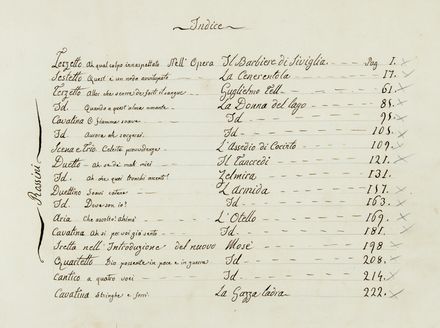 Indice
Terzetto Ah qual colpo inaspettato Nell' Opera Il Barbiere di Siviglia. Pag. 1.
Sestetto Quest' è un nodo avviluppato La Cenerentola 17.
Terzetto Allor che scorre de forti il sangue Guglielmo Tell 61.
Id. Quando a quest' alma amante La Donna del lago 85.
Cavatina O fiamma soave Id 95.
Id. Aurora ah sorgerai Id 105.
Scena e Trio Celeste provvidenza L'Assedio di Corinto 109.
Duetto Ah se de' mali miei Il Tancredi 121.
Id. Ah che quei tronchi accenti! Zelmira 131.
Duettino Amor L'Armida 157.
Id. Dove son io? Id 163.
Aria Che ascolto! ahimè L'Otello 169.
Cavatina Ah sì per voi già sento Id. 181.
Stretta nell' Introduzione del nuovo Mosè 198
Quartetto Dio possente in pace e in guerra Id 208.
Cantico a quattro voci Id 214.
Cavatina Stringhe e ferri La Gazza ladra 222.
Rossini